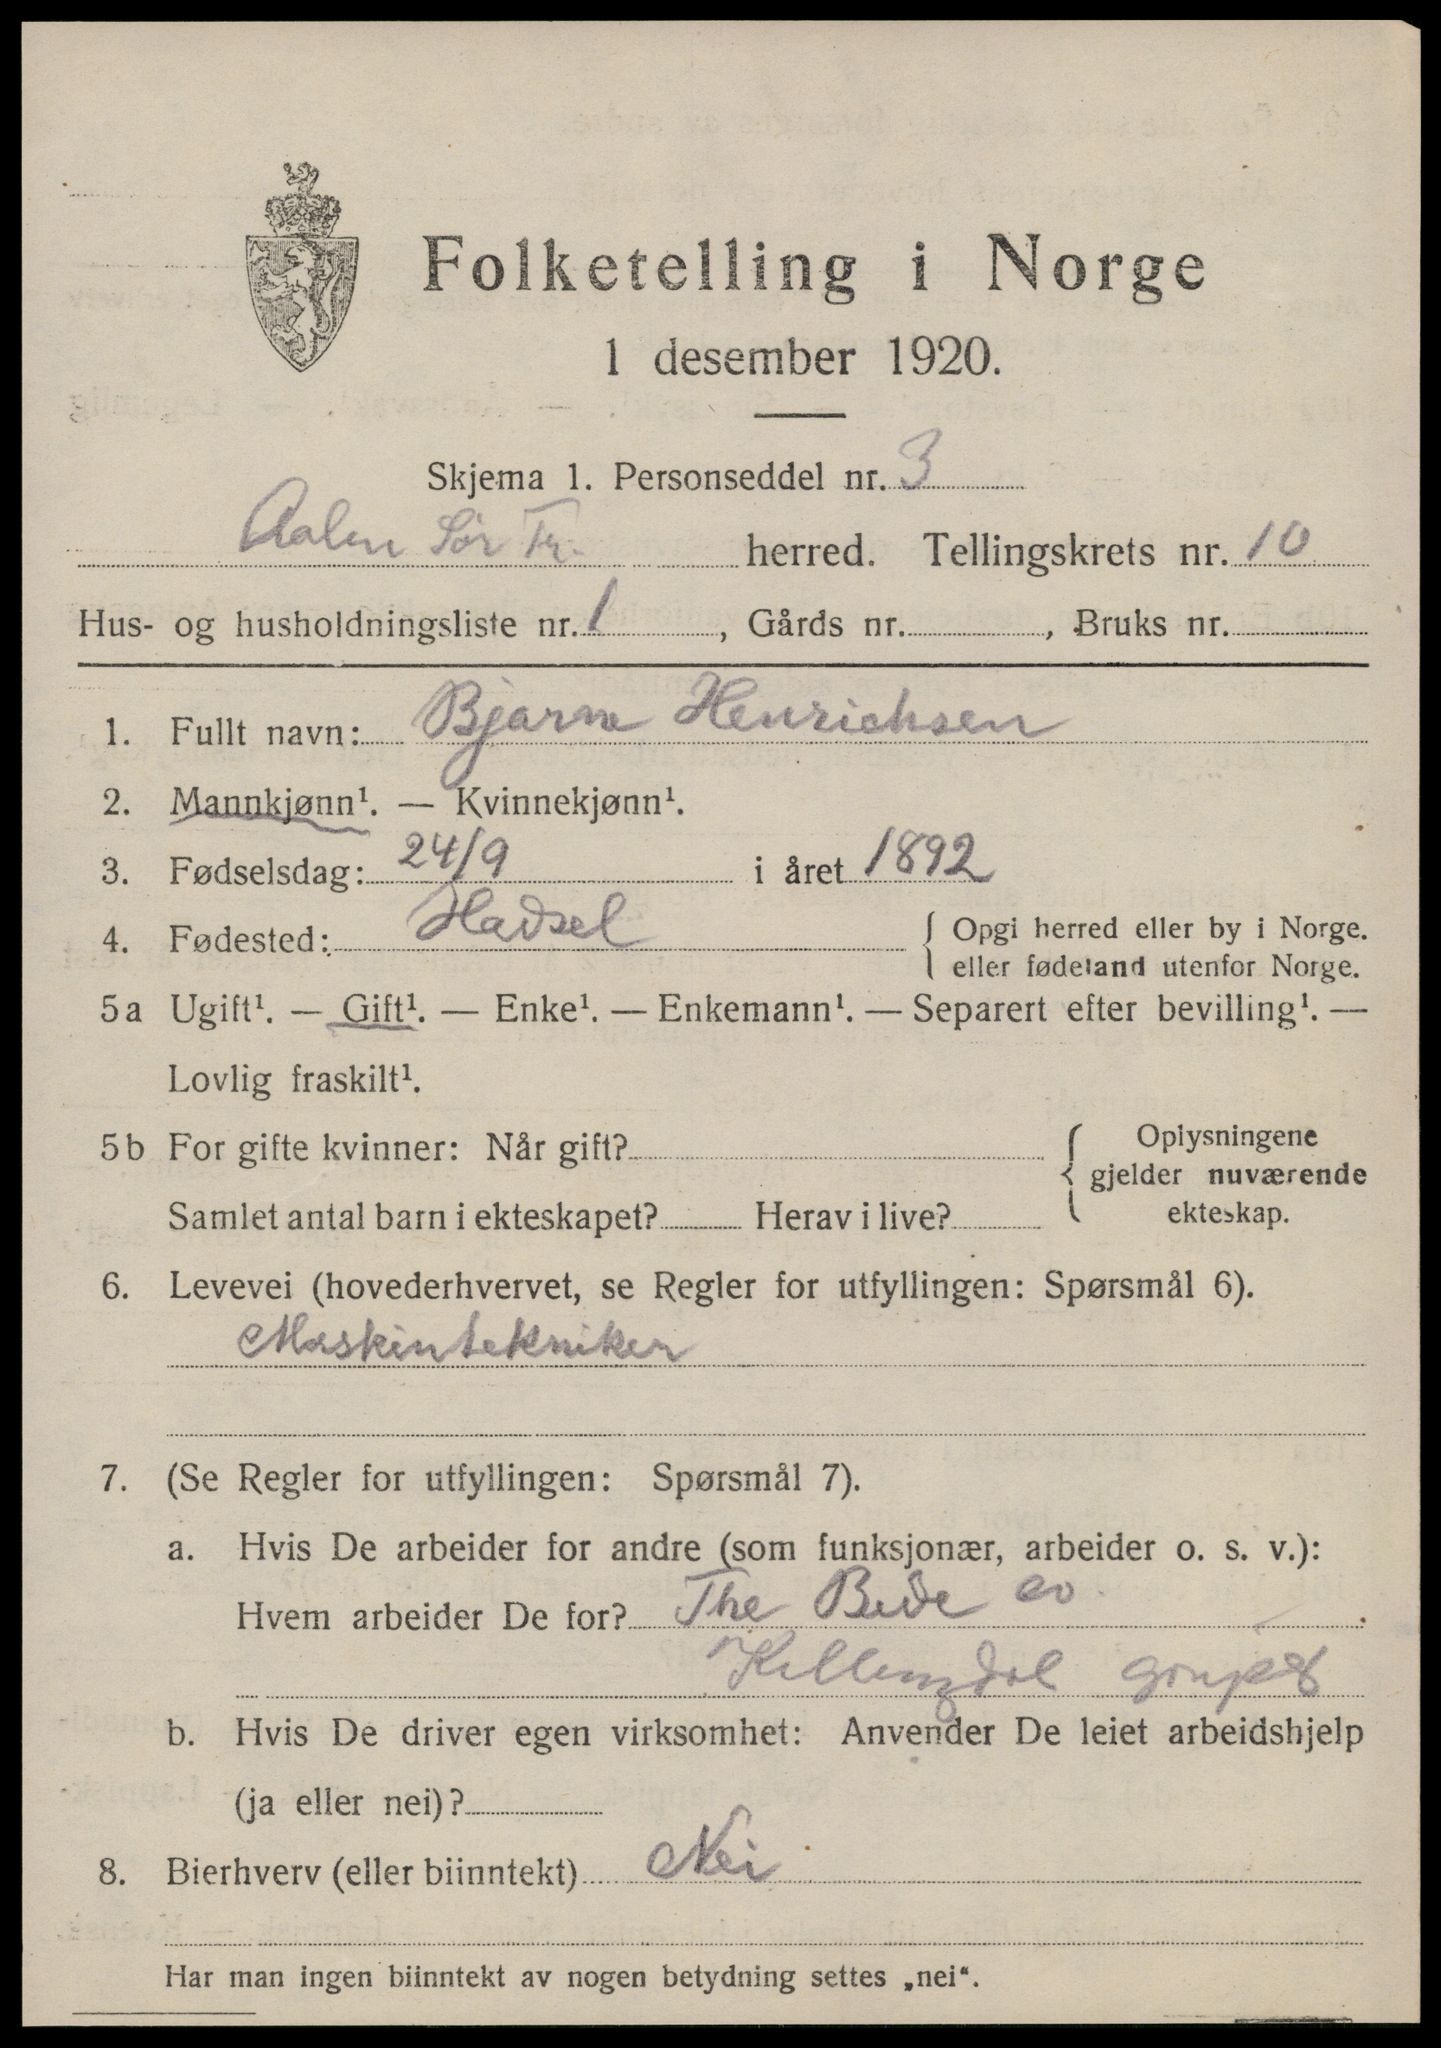 Folketelling i Norge
1 desember 1920.
Skjema 1. Personseddel nr. 3
Aalen Sør Tr. herred. Tellingskrets nr. 10
Hus- og husholdningsliste nr. 1, Gårds nr. , Bruks nr.
1. Fullt navn: Bjarne Henrichsen
2. Mannkjønn¹. — Kvinnekjønn¹.
3. Fødselsdag: 24/9 i året 1892
4. Fødested: Hadsel { Opgi herred eller by i Norge.
eller fødeland utenfor Norge.
5a Ugift¹. — Gift¹. — Enke¹. — Enkemann¹. — Separert efter bevilling¹. —
Lovlig fraskilt¹.
5b For gifte kvinner: Når gift? { Oplysningene
gjelder nuværende
Samlet antal barn i ekteskapet? Herav i live? ekteskap.
6. Levevei (hovederhvervet, se Regler for utfyllingen: Spørsmål 6).
Maskintekniker
7. (Se Regler for utfyllingen: Spørsmål 7).
a. Hvis De arbeider for andre (som funksjonær, arbeider o. s. v.):
Hvem arbeider De for? The Bede co.
Killingdal
b. Hvis De driver egen virksomhet: Anvender De leiet arbeidshjelp
(ja eller nei)?
8. Bierhverv (eller biinntekt) Nei
Har man ingen biinntekt av nogen betydning settes „nei“.